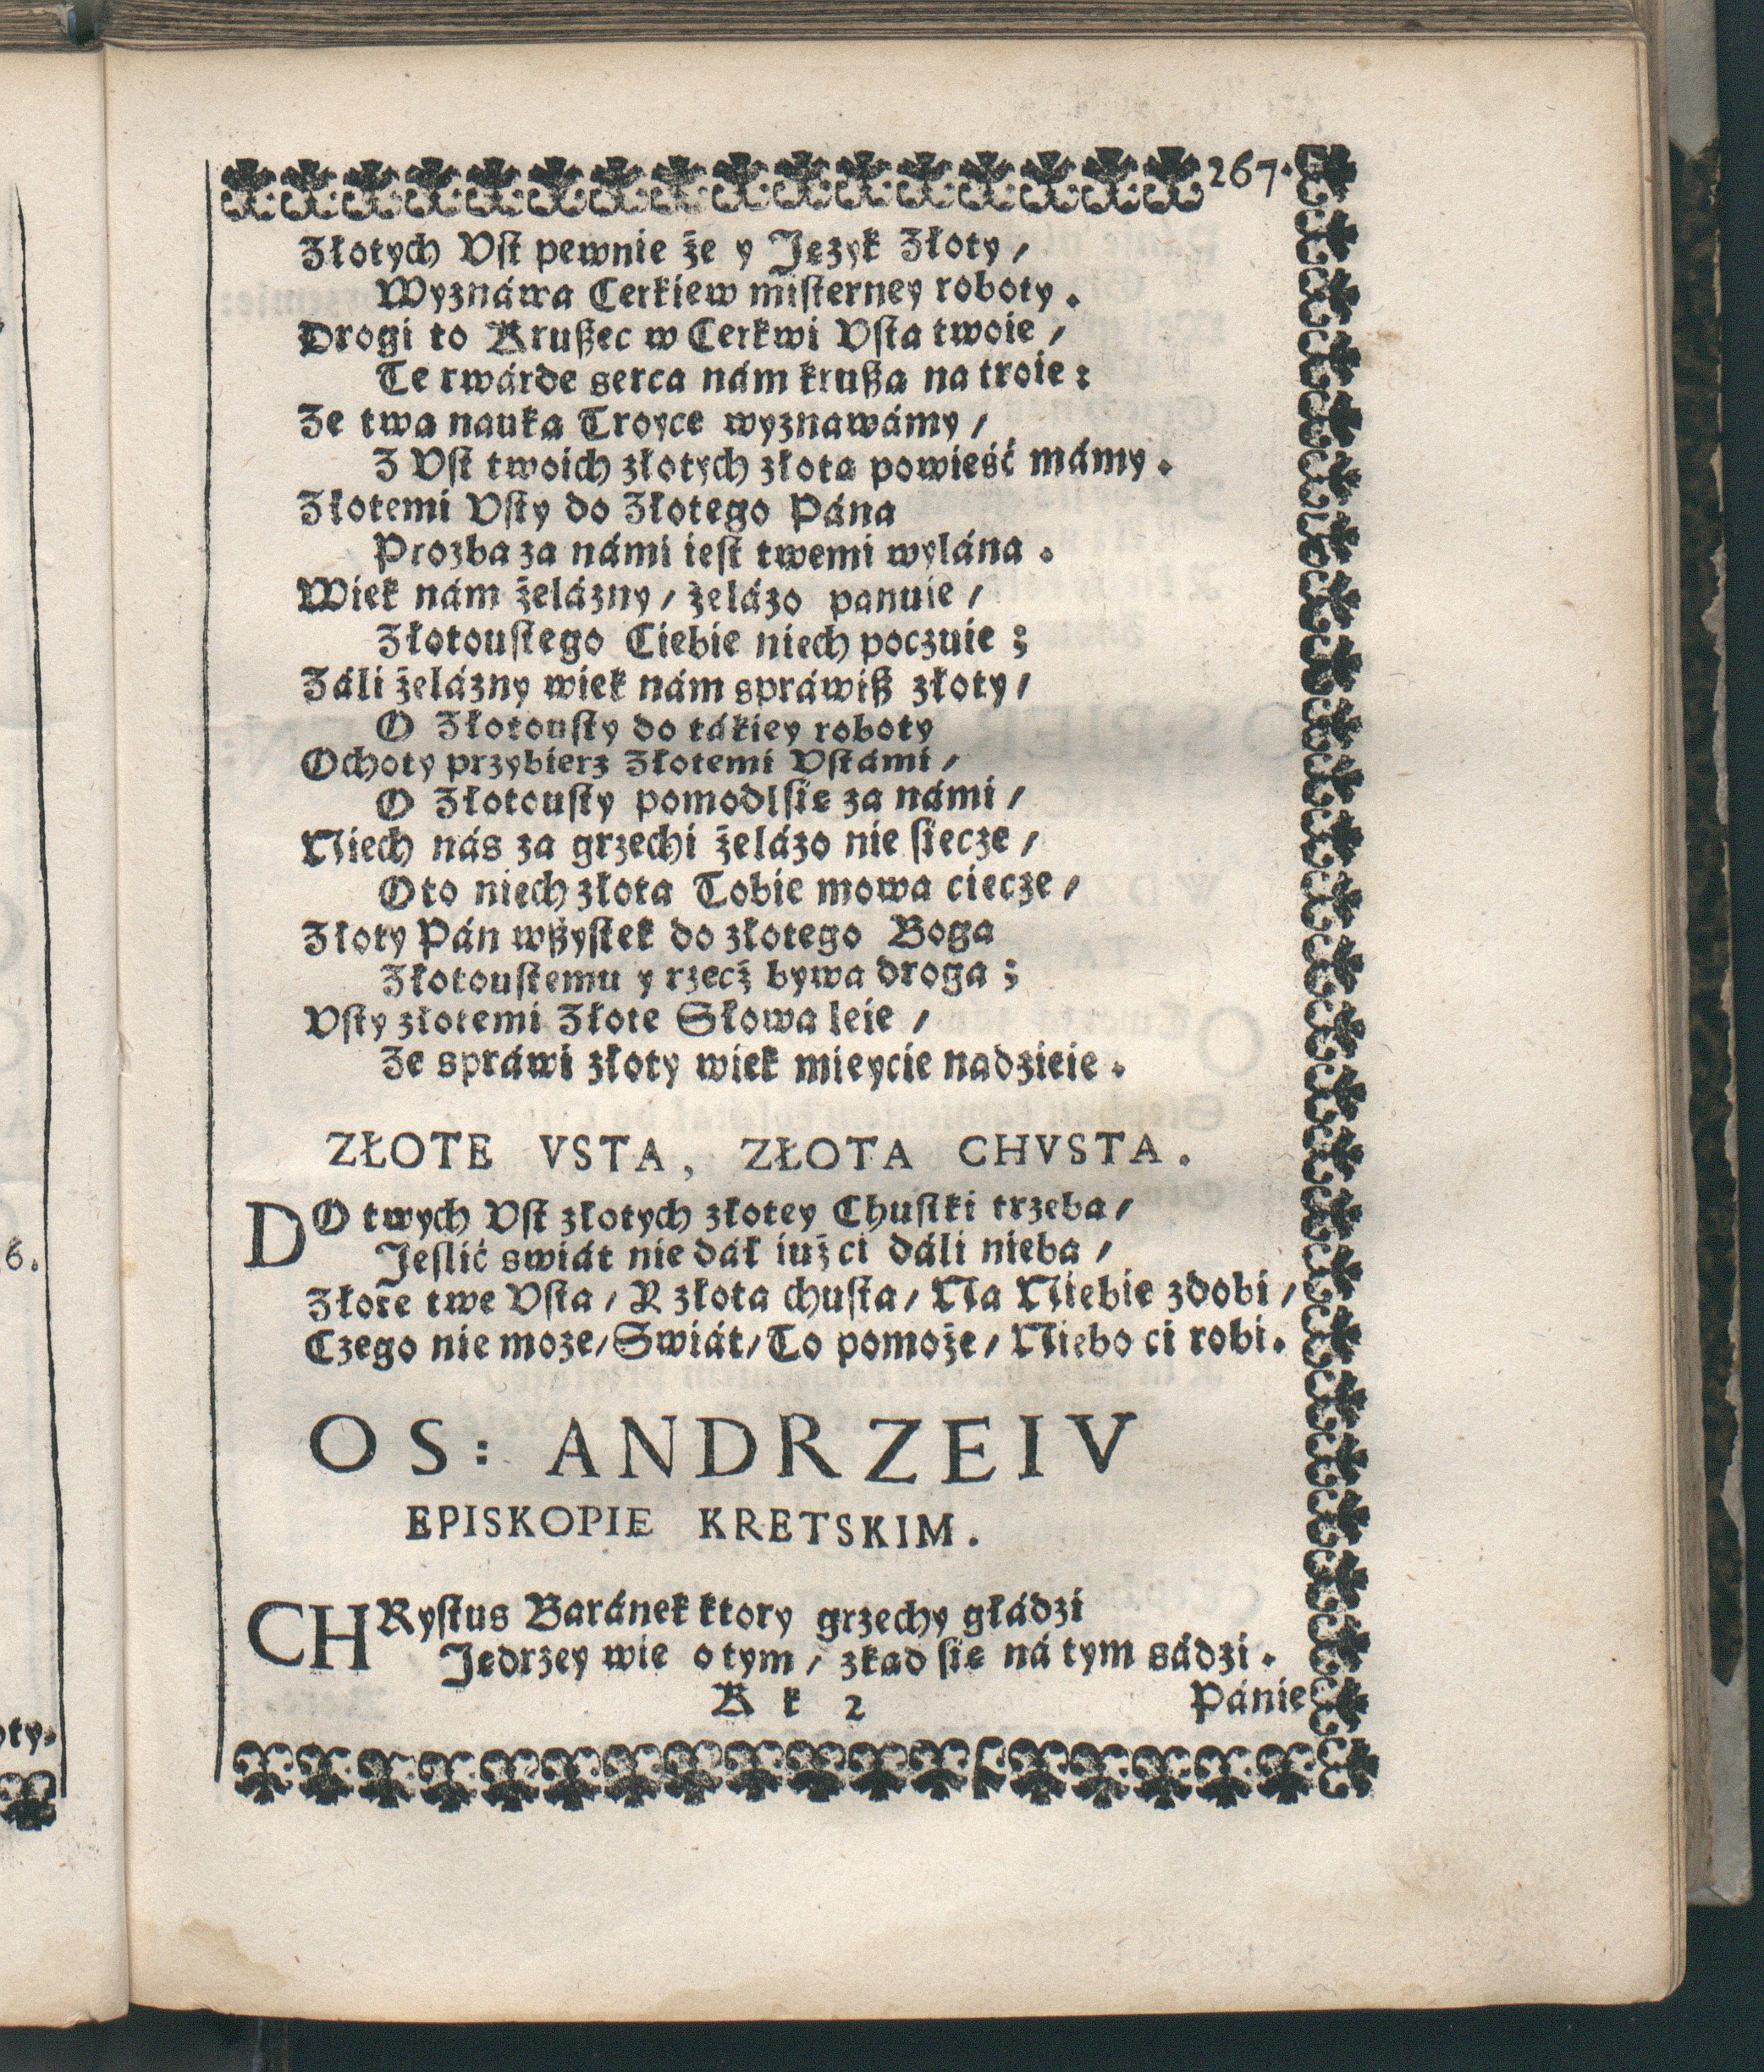 267.
Złotych Vſt pewnie że y Język Złoty /
Wyznáwa Cerkiew miſterney roboty .
Drogi to Krußec w Cerkwi Vſta twoie /
Te rwárde serca nám krußa na troie :
Ze twa nauka Troyce wyznawámy /
Z Vſt twoich złotych złota powieść mámy .
Złotemi Vſty do Złotego Pána
Prozba za námi ieſt twemi wylána .
Wiek nám żelázny / żelázo panuie /
Złotouſtego Ciebie niech poczuie ;
Záli żelázny wiek nám spráwiß złoty /
O Złotouſty do tákiey roboty
Ochoty przybierz Złotemi Vſtámi /
O Złotouſty pomodlſię za námi /
Niech nás za grzechi żelázo nie ſiecze /
Oto niech złota Tobie mowa ciecze /
Złoty Pán wßyſtek do złotego Boga
Złotouſtemu y rzecż bywa droga ;
Vſty złotemi Złote Słowa leie /
Ze spráwi złoty wiek mieycie nadzieie .
ZŁOTE VSTA , ZŁOTA CHVSTA .
DO twych Vſt złotych złotey Chuſtki trzeba /
Jeſlić swiát nie dáł iuż ci dáli nieba /
Złote twe Vſta / Y złota chuſta / Na Niebie zdobi /
Czego nie moze / Swiát / To pomoże / Niebo ci robi .
OS : ANDRZEIV
EPISKOPIE KRETSKIM .
CHRyſtus Baránek ktory grzechy głádzi
Jędrzey wie o tym / zkad ſię ná tym sádzi .
K k 2 Pánie
6.
oty.